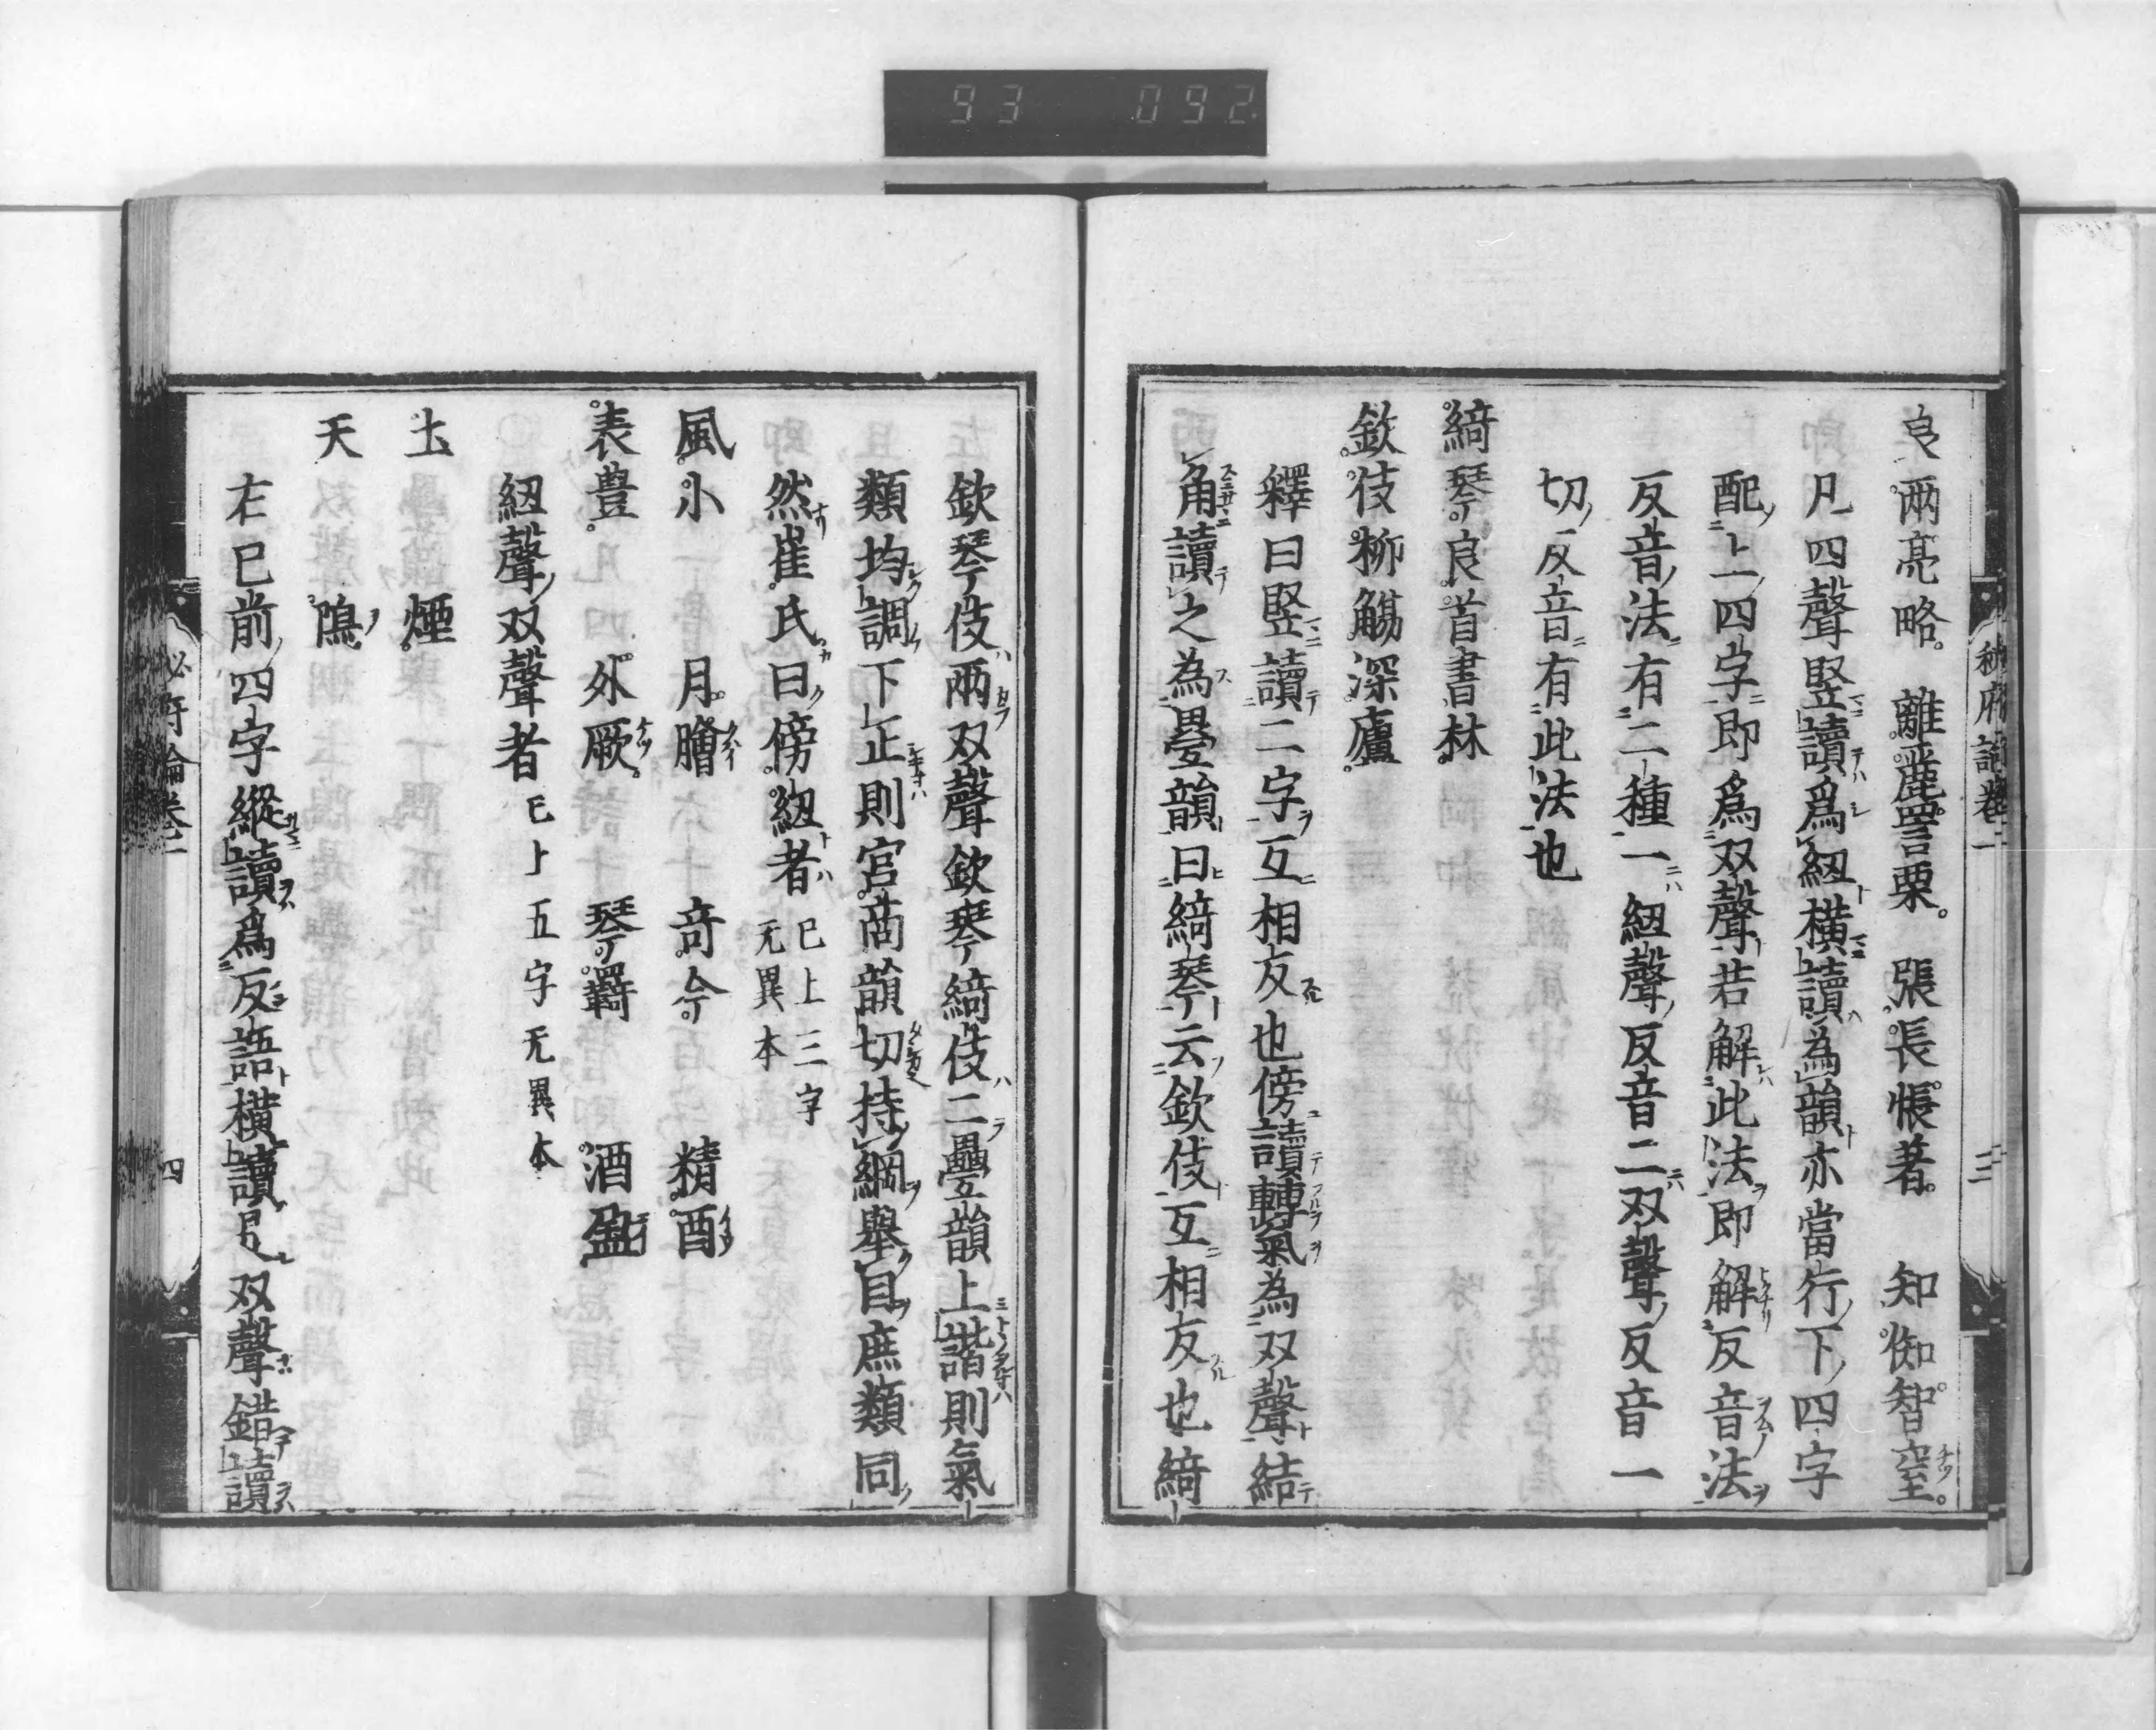 93 092
良兩亮略。離麗詈栗。張長悵著。知㮹智窒。
凡四聲竪讀爲紐橫讀為韻亦當行下四字
配上四字即爲双聲若解此法即解反音法
反音法有二種一紐聲反音二双聲反音一
切反音有此法也
綺琴。良首書林
欽伎柳觴深廬
釋曰竪讀二字互相反也傍讀轉氣為双聲結
角讀之為疊韻曰綺琴云欽伎互相反也綺
三
欽琴伎兩双聲欽琴綺伎二疊韻上諧則氣
類均調下正則宮商韻切持綱舉目庶類同
然崔氏曰傍紐者 已上三字
无異本
風小 月膾 奇今 精酉
表豊 外厥 琴羇 酒盈
紐聲双聲者 已上五字无異本
土 煙
天 隝
右已前四字縱讀爲反語橫讀是双聲錯讀
四